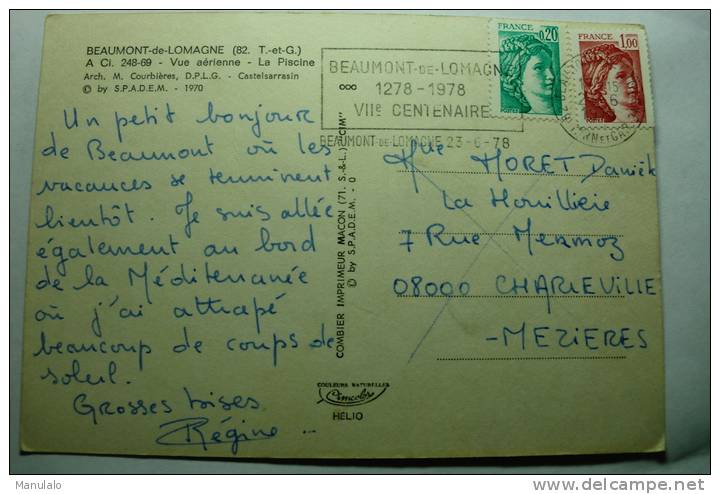 BEAUMONT-de-LOMAGNE (82. T.-et-G.)
A Ci. 248-69 - Vue aérienne - La Piscine
Arch. M. Courbières, D.P.L.G. - Castelsarrasin
© by S.P.A.D.E.M. - 1970
Un petit bonjour
de Beaumont où les
vacances se terminent
bientôt. Je suis allée
également au bord
de la Méditerranée
où j'ai attrapé
beaucoup de coups de
soleil.
Grosses bises
Régine
COMBIER IMPRIMEUR MACON (71. S.-&-L.) "CIM"
© by S.P.A.D.E.M. - 0
COULEURS NATURELLES
Cimcolor
HELIO
BEAUMONT-DE-LOMAGNE
1278-1978
VIIe CENTENAIRE
BEAUMONT-DE-LOMAGNE 23-6-78
FRANCE
0,20
FRANCE
1,00
MORET Danièle
La Houillère
7 Rue Mermoz
08000 CHARLEVILLE
-MEZIERES
Manulalo
delcampe.net